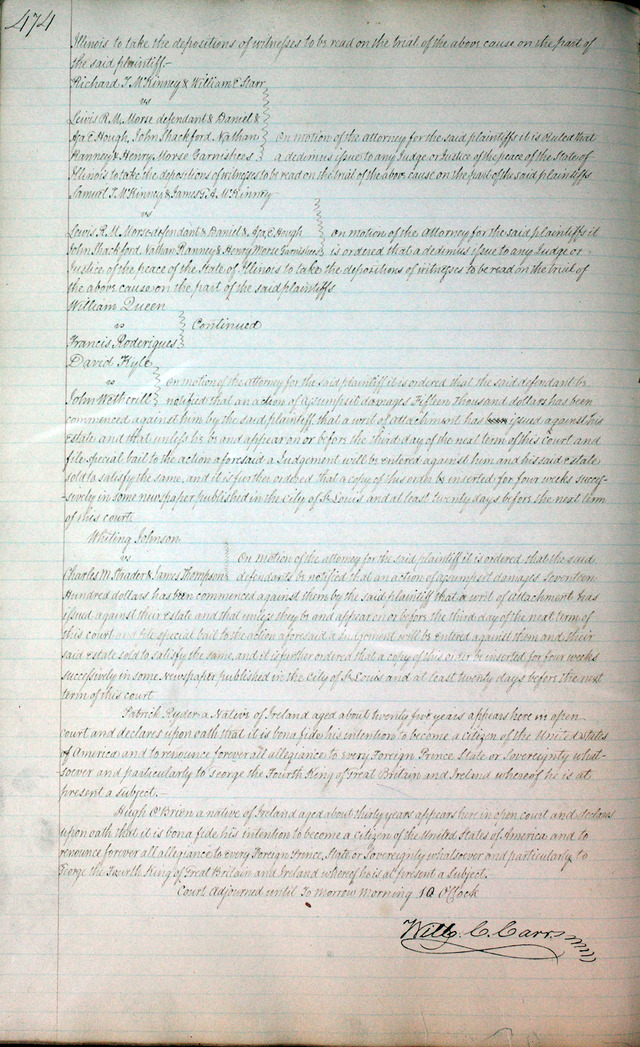 474
Illinois to take the depositions of witnesses to be read on the trial of the above cause on the part of
the said plaintiff –
Richard T. McKinney & William C Starr
vs
Lewis R. M. Morse defendant & Daniel &
Asa E Hough, John Shackford, Nathan
Ranney & Henry Morse Garnishees
On motion of the attorney for the said plaintiffs it is Ruled that
a dedimus issue to any Judge or Justice of the peace of the State of
Illinois to take the depositions of witnesses to be read on the trial of the above cause on the part of the said plaintiffs
Samuel T. McKinney & James McKinney
vs
Lewis R. M. Morse defendant & Daniel & Asa E Hough
John Shackford, Nathan Ranney & Henry Morse Garnishees
On motion of the Attorney for the said plaintiffs it
is ordered that a dedimus issue to any Judge or
Justice of the peace of the State of Illinois to take the depositions of witnesses to be read on the trial of
the above cause on the part of the said plaintiffs
William Queen
vs
Francis Roderigues
Continued
David Kyle
vs
John Wetherill
On motion of the attorney for the said plaintiff it is ordered that the said defendant be
notified that an action of assumpsit damages Fifteen thousand dollars has been
commenced against him by the said plaintiff that a writ of Attachment has issued against his
estate and that unless he be and appear on or before the third day of the next term of this Court and
file special bail to the action aforesaid a Judgement will be entered against him and his said estate
sold to satisfy the same, and it is further ordered that a copy of this order be inserted for four weeks succes-
sively in some newspaper published in the City of St Louis and at least twenty days before the next term
of this court.
Whiting Johnson
vs
Charles M. Strader & James Thompson
On motion of the attorney for the said plaintiff it is ordered that the said
defendants be notified that an action of assumpsit damages seventeen
Hundred dollars has been commenced against them by the said plaintiff that a writ of Attachment has
issued against their estate and that unless they be and appear on or before the third day of the next term of
this court and file special bail to the action aforesaid a Judgement will be entered against them and their
said estate sold to satisfy the same, and it is further ordered that a copy of this order be inserted for four weeks
successively in some Newspaper published in the City of St Louis and at least twenty days before the next
term of this court
Patrick Ryder a Native of Ireland aged about twenty five years appears here in open
court and declares upon oath that it is bona fide his intention to become a citizen of the United States
of America and to renounce forever all allegiance to every Foreign Prince State or Sovereignty what-
soever and particularly to George the Fourth King of Great Britain and Ireland whereof he is at
present a subject. –
Hugh O'Brien a native of Ireland aged about thirty years appears here in open court and declares
upon oath that it is bona fide his intention to become a citizen of the United States of America and to
renounce forever all allegiance to every Foreign Prince, State or Sovereignty whatsoever and particularly to
George the Fourth King of Great Britain and Ireland whereof he is at present a subject.
Court adjourned until To morrow Morning 10 O'Clock
Will: C. Carr